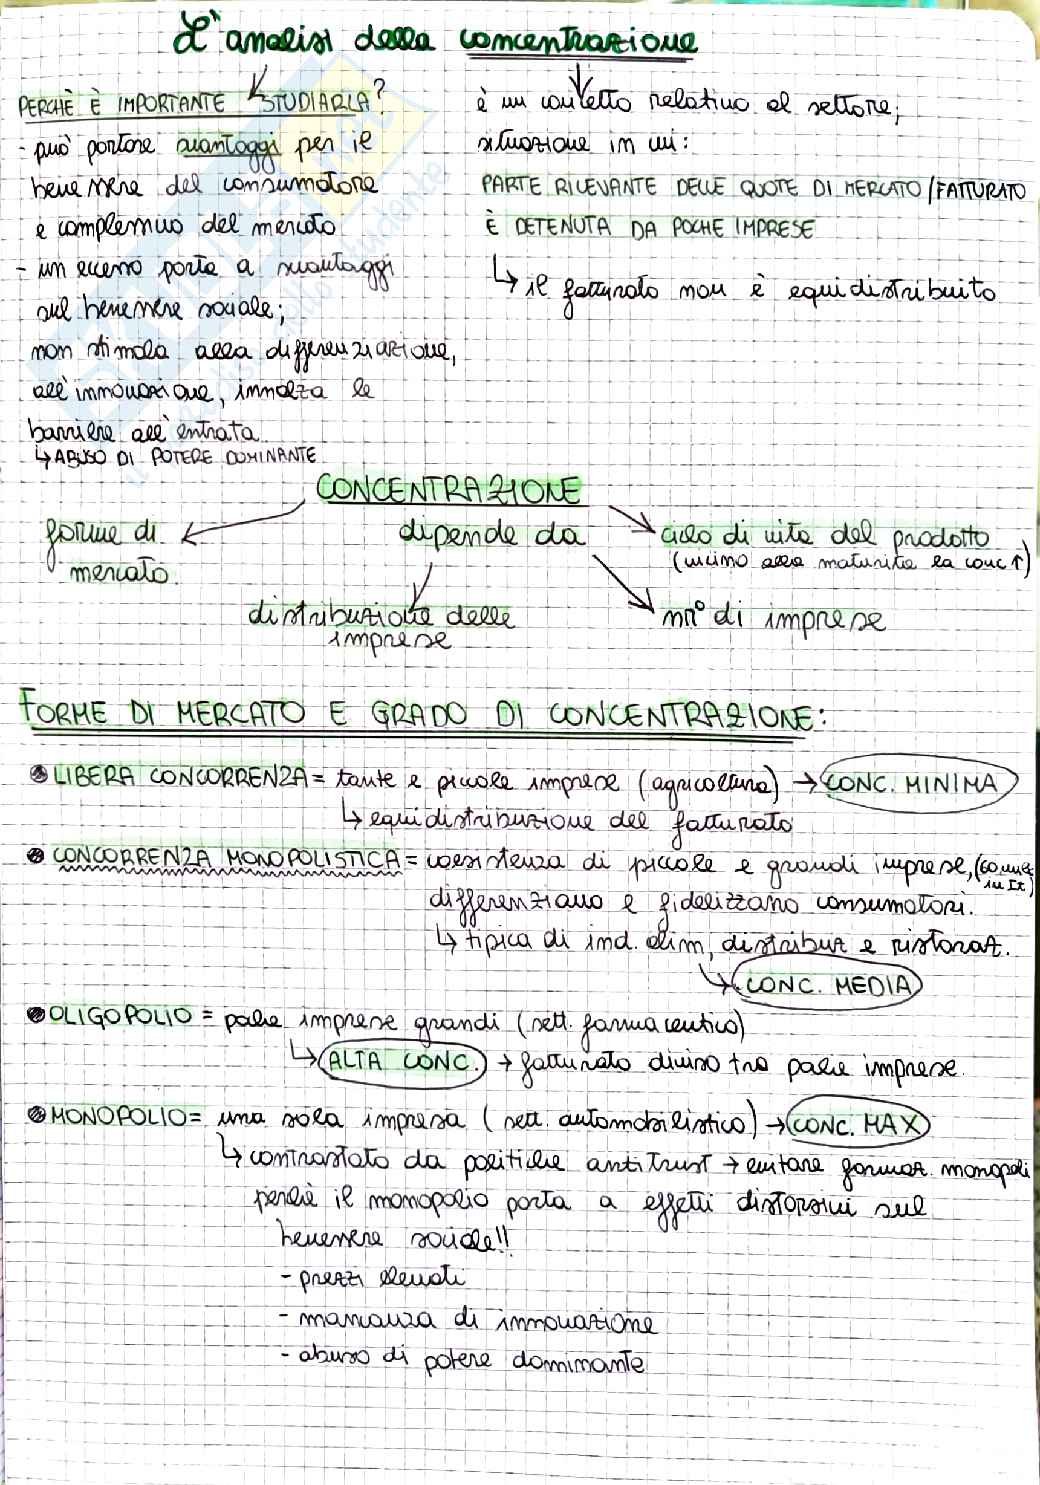 L'analisi della concentrazione
PERCHÈ È IMPORTANTE STUDIARLA?
- può portare svantaggi per il
benessere del consumatore
e complessivo del mercato
- un eccesso porta a svantaggi
sul benessere sociale;
non stimola alla differenziazione,
all'innovazione, innalza le
barriere all'entrata
↳ ABUSO DI POTERE DOMINANTE
è un concetto relativo al settore;
situazione in cui:
PARTE RILEVANTE DELLE QUOTE DI MERCATO/FATTURATO
È DETENUTA DA POCHE IMPRESE
↳ il fatturato non è equidistribuito
CONCENTRAZIONE
dipende da
forme di
mercato
distribuzione delle
imprese
ciclo di vita del prodotto
(vicino alla maturità la conc ↑)
nr° di imprese
FORME DI MERCATO E GRADO DI CONCENTRAZIONE:
LIBERA CONCORRENZA = tante e piccole imprese (agricoltura) → CONC. MINIMA
↳ equidistribuzione del fatturato
CONCORRENZA MONOPOLISTICA = coesistenza di piccole e grandi imprese, (comune in It)
differenziano e fidelizzano consumatori.
↳ tipica di ind. alim, distribuz e ristoraz.
↳ CONC. MEDIA
OLIGOPOLIO = poche imprese grandi (sett. farmaceutico)
↳ ALTA CONC. → fatturato diviso tra poche imprese.
MONOPOLIO = una sola impresa (sett. automobilistico) → CONC. MAX
↳ contrastato da politiche antitrust → evitare formaz. monopoli
perchè il monopolio porta a effetti distorsivi sul
benessere sociale!!
- prezzi elevati
- mancanza di innovazione
- abuso di potere dominante